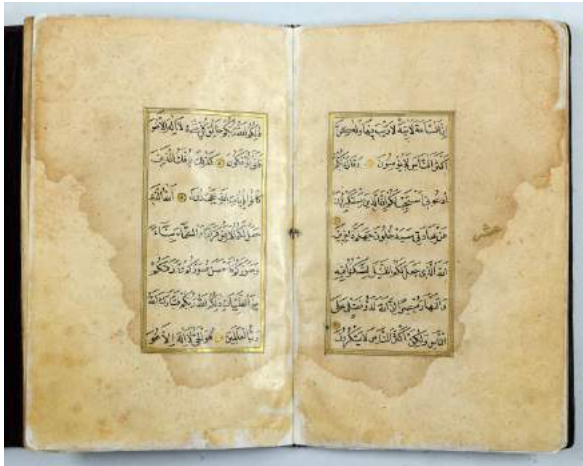 ان الساعة لاتية لا ريب فيها ولكن
اكثر الناس لا يؤمنون وقال ربكم
ادعونى استجب لكم ان الذين يستكبرون
عن عبادتى سيدخلون جهنم داخرين
عشر
الله الذى جعل لكم اليل لتسكنوا فيه
والنهار مبصرا ان الله لذو فضل على
الناس ولكن اكثر الناس لا يشكرون
ذلكم الله ربكم خالق كل شىء لا اله الا هو
فانى تؤفكون كذلك يؤفك الذين
كانوا بايات الله يجحدون الله الذى
جعل لكم الارض قرارا والسماء بناء
وصوركم فاحسن صوركم ورزقكم
من الطيبات ذلكم الله ربكم فتبارك الله
رب العالمين هو الحى لا اله الا هو